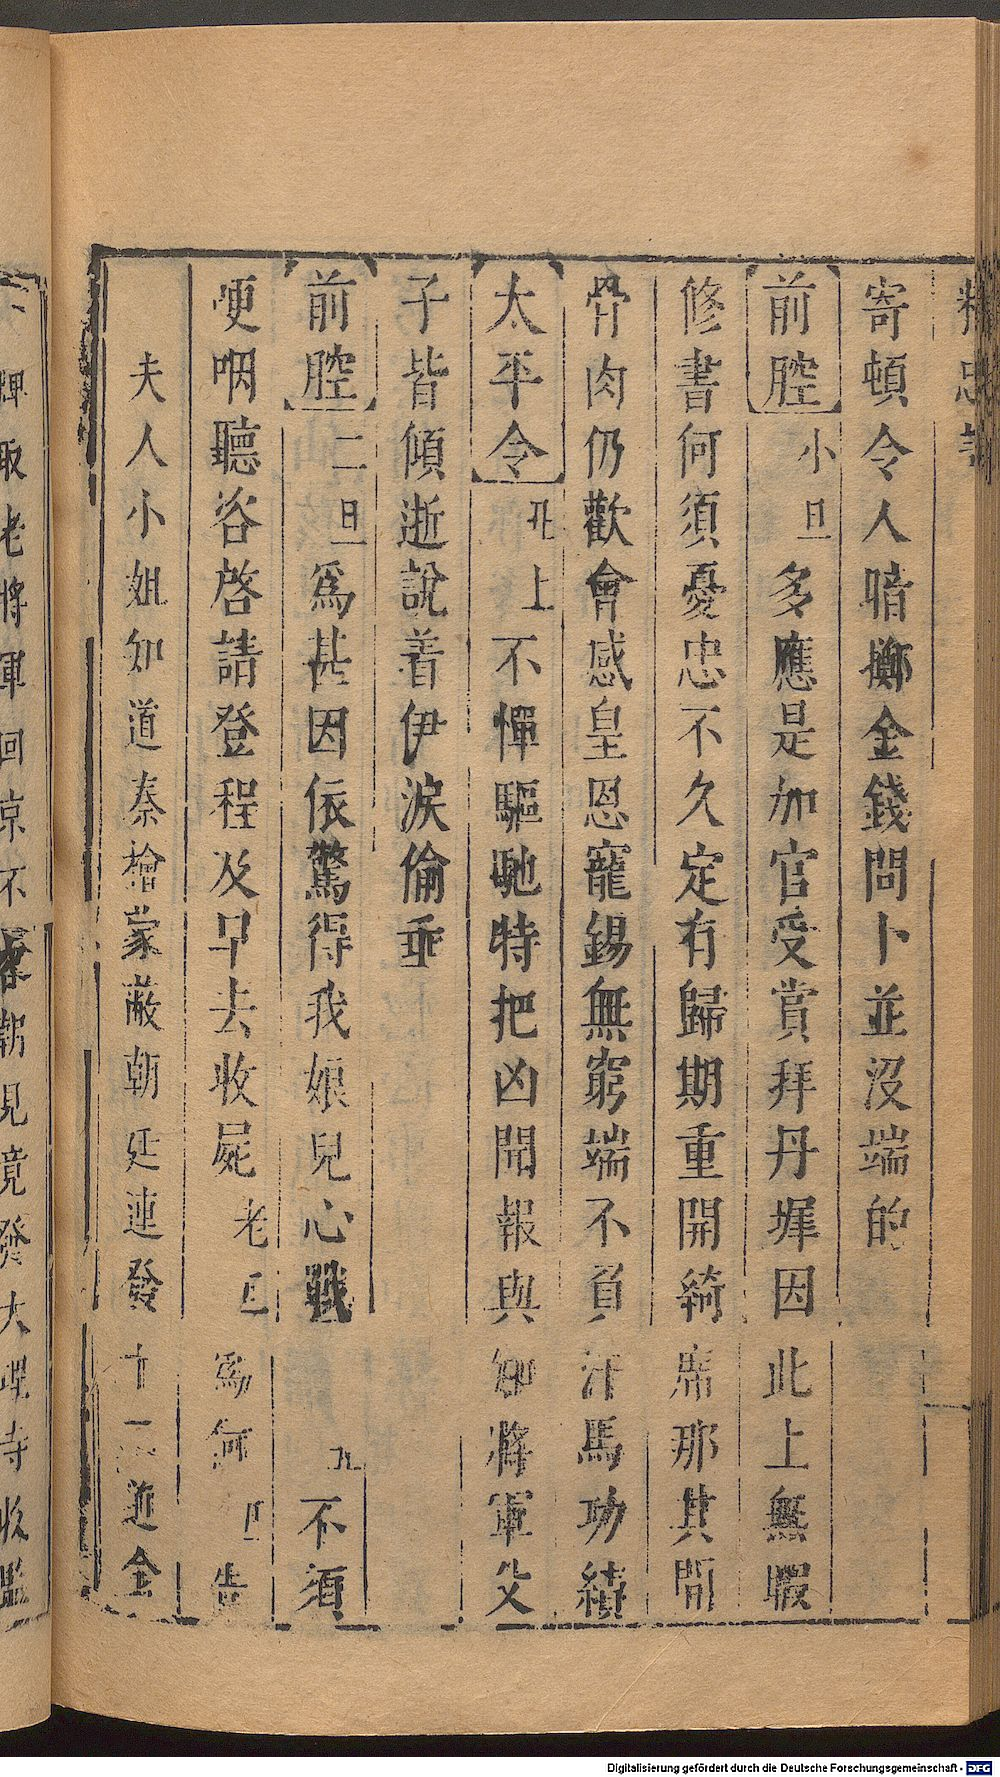 寄頓令人暗擲金錢問卜並沒端的
前腔 小旦 多應是加官受賞拜丹墀因此上無暇
修書何須憂忠不久定有歸期重開綺席那其間
骨肉仍歡會感皇恩寵錫無窮端不負汗馬功績
太平令 丑上 不憚驅馳特把凶聞報與知將軍父
子皆傾逝說着伊淚偷垂
前腔 二旦 爲甚因依驚得我娘兒心戰 丑 不須
哽咽聽咨啓請登程及早去收屍 老旦 爲何 告
夫人小姐知道秦檜蒙蔽朝廷連發十二道金
牌取老將軍回京不容朝見竟發大理寺收監
Digitalisierung gefördert durch die Deutsche Forschungsgemeinschaft - DFG